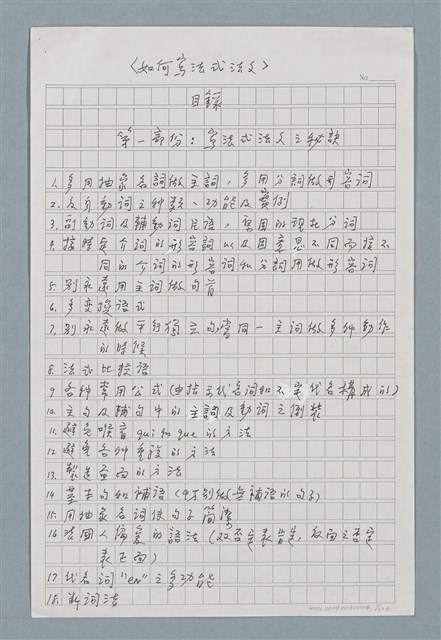 〈如何寫法式法文〉
No.
目錄
第一部份：寫法式法文之秘訣
1. 多用抽象名詞做主詞，多用分詞做形容詞
2. 反身動詞之種類、功能及實例
3. 副動詞及輔動詞片語，常用的現在分詞
4. 接特定介詞的形容詞以及因意思不同而接不
同的介詞的形容詞和分詞用做形容詞
5. 別永遠用主詞做句首
6. 多變換語式
7. 別永遠做平行獨立句，當同一主詞做多種動作
的時候
8. 法式比較語
9. 各種常用公式（由指示代名詞和不定代名構成的）
10. 主句及輔句中的主詞及動詞之倒裝
11. 避免喉音qui和que的方法
12. 避免各種重複的方法
13. 製造
面的方法
14. 基本句和補語（千萬別做無補語的句子）
15. 用抽象名詞使句子簡潔
16. 法國人偏愛的語法（双否定表肯定，反面之否定
表正面）
17. 代名詞“en”之多功能
18. 斷詞法